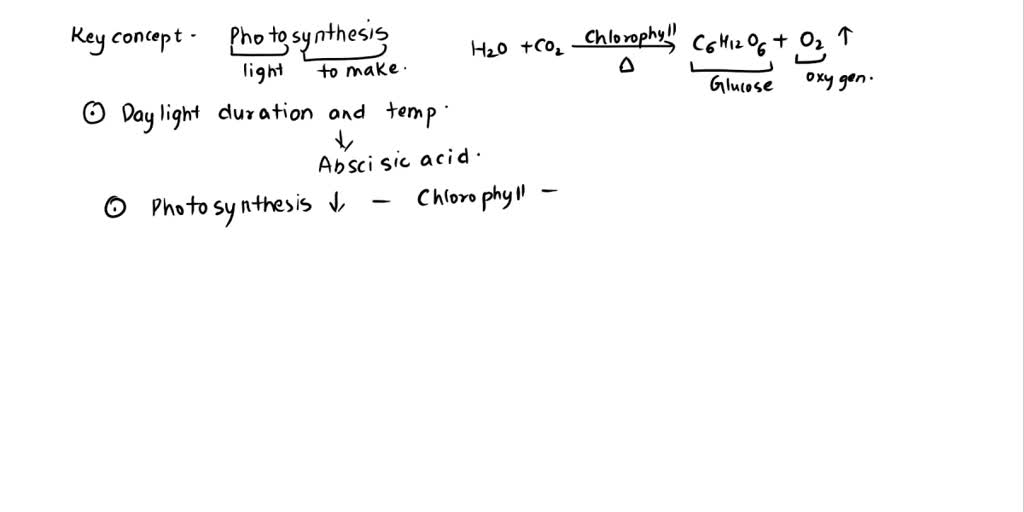 Key concept - Photosynthesis
light to make.
H2O + CO2 Chlorophyll Δ → C6H12O6 + O2 ↑
Glucose oxygen.
⊙ Daylight duration and temp.
↓
Abscisic acid.
⊙ Photosynthesis ↓ - Chlorophyll -